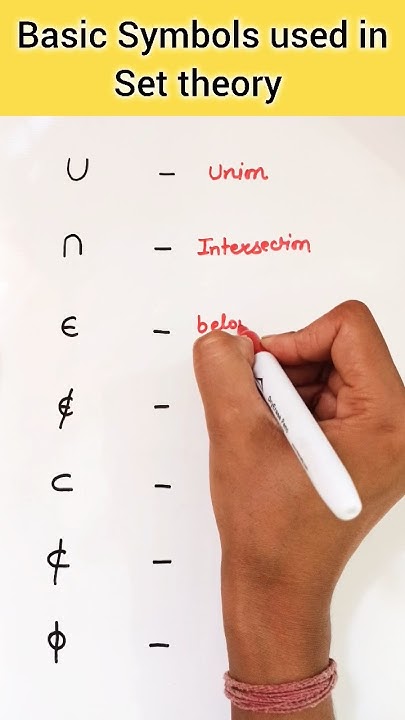 Basic Symbols used in
Set theory
∪ - Union
∩ - Intersection
∈ - belo
∉ -
⊂ -
⊄ -
ϕ -